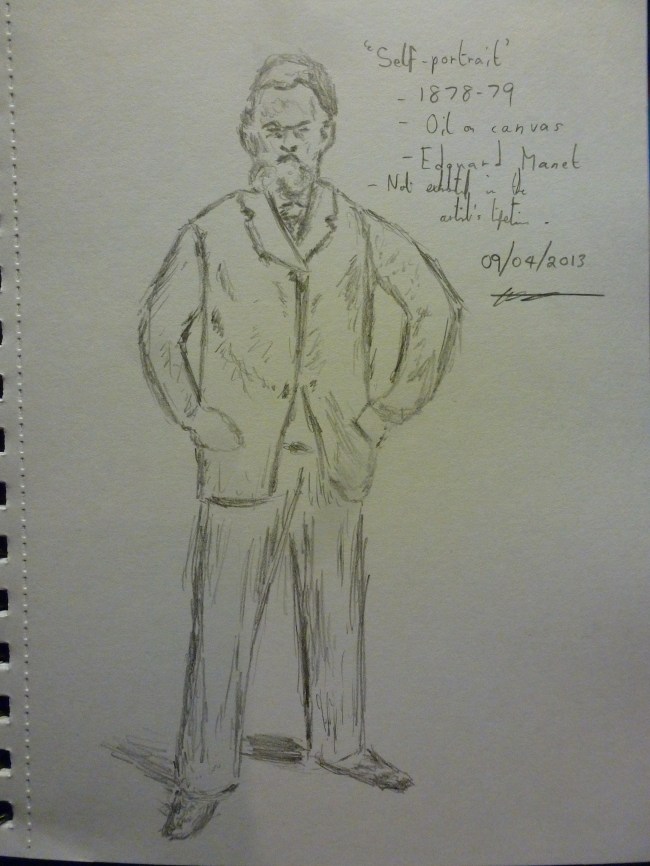 "Self-portrait"
- 1878-79
- Oil on canvas
- Edouard Manet
- Not in the
artist's lifetime.
09/04/2013